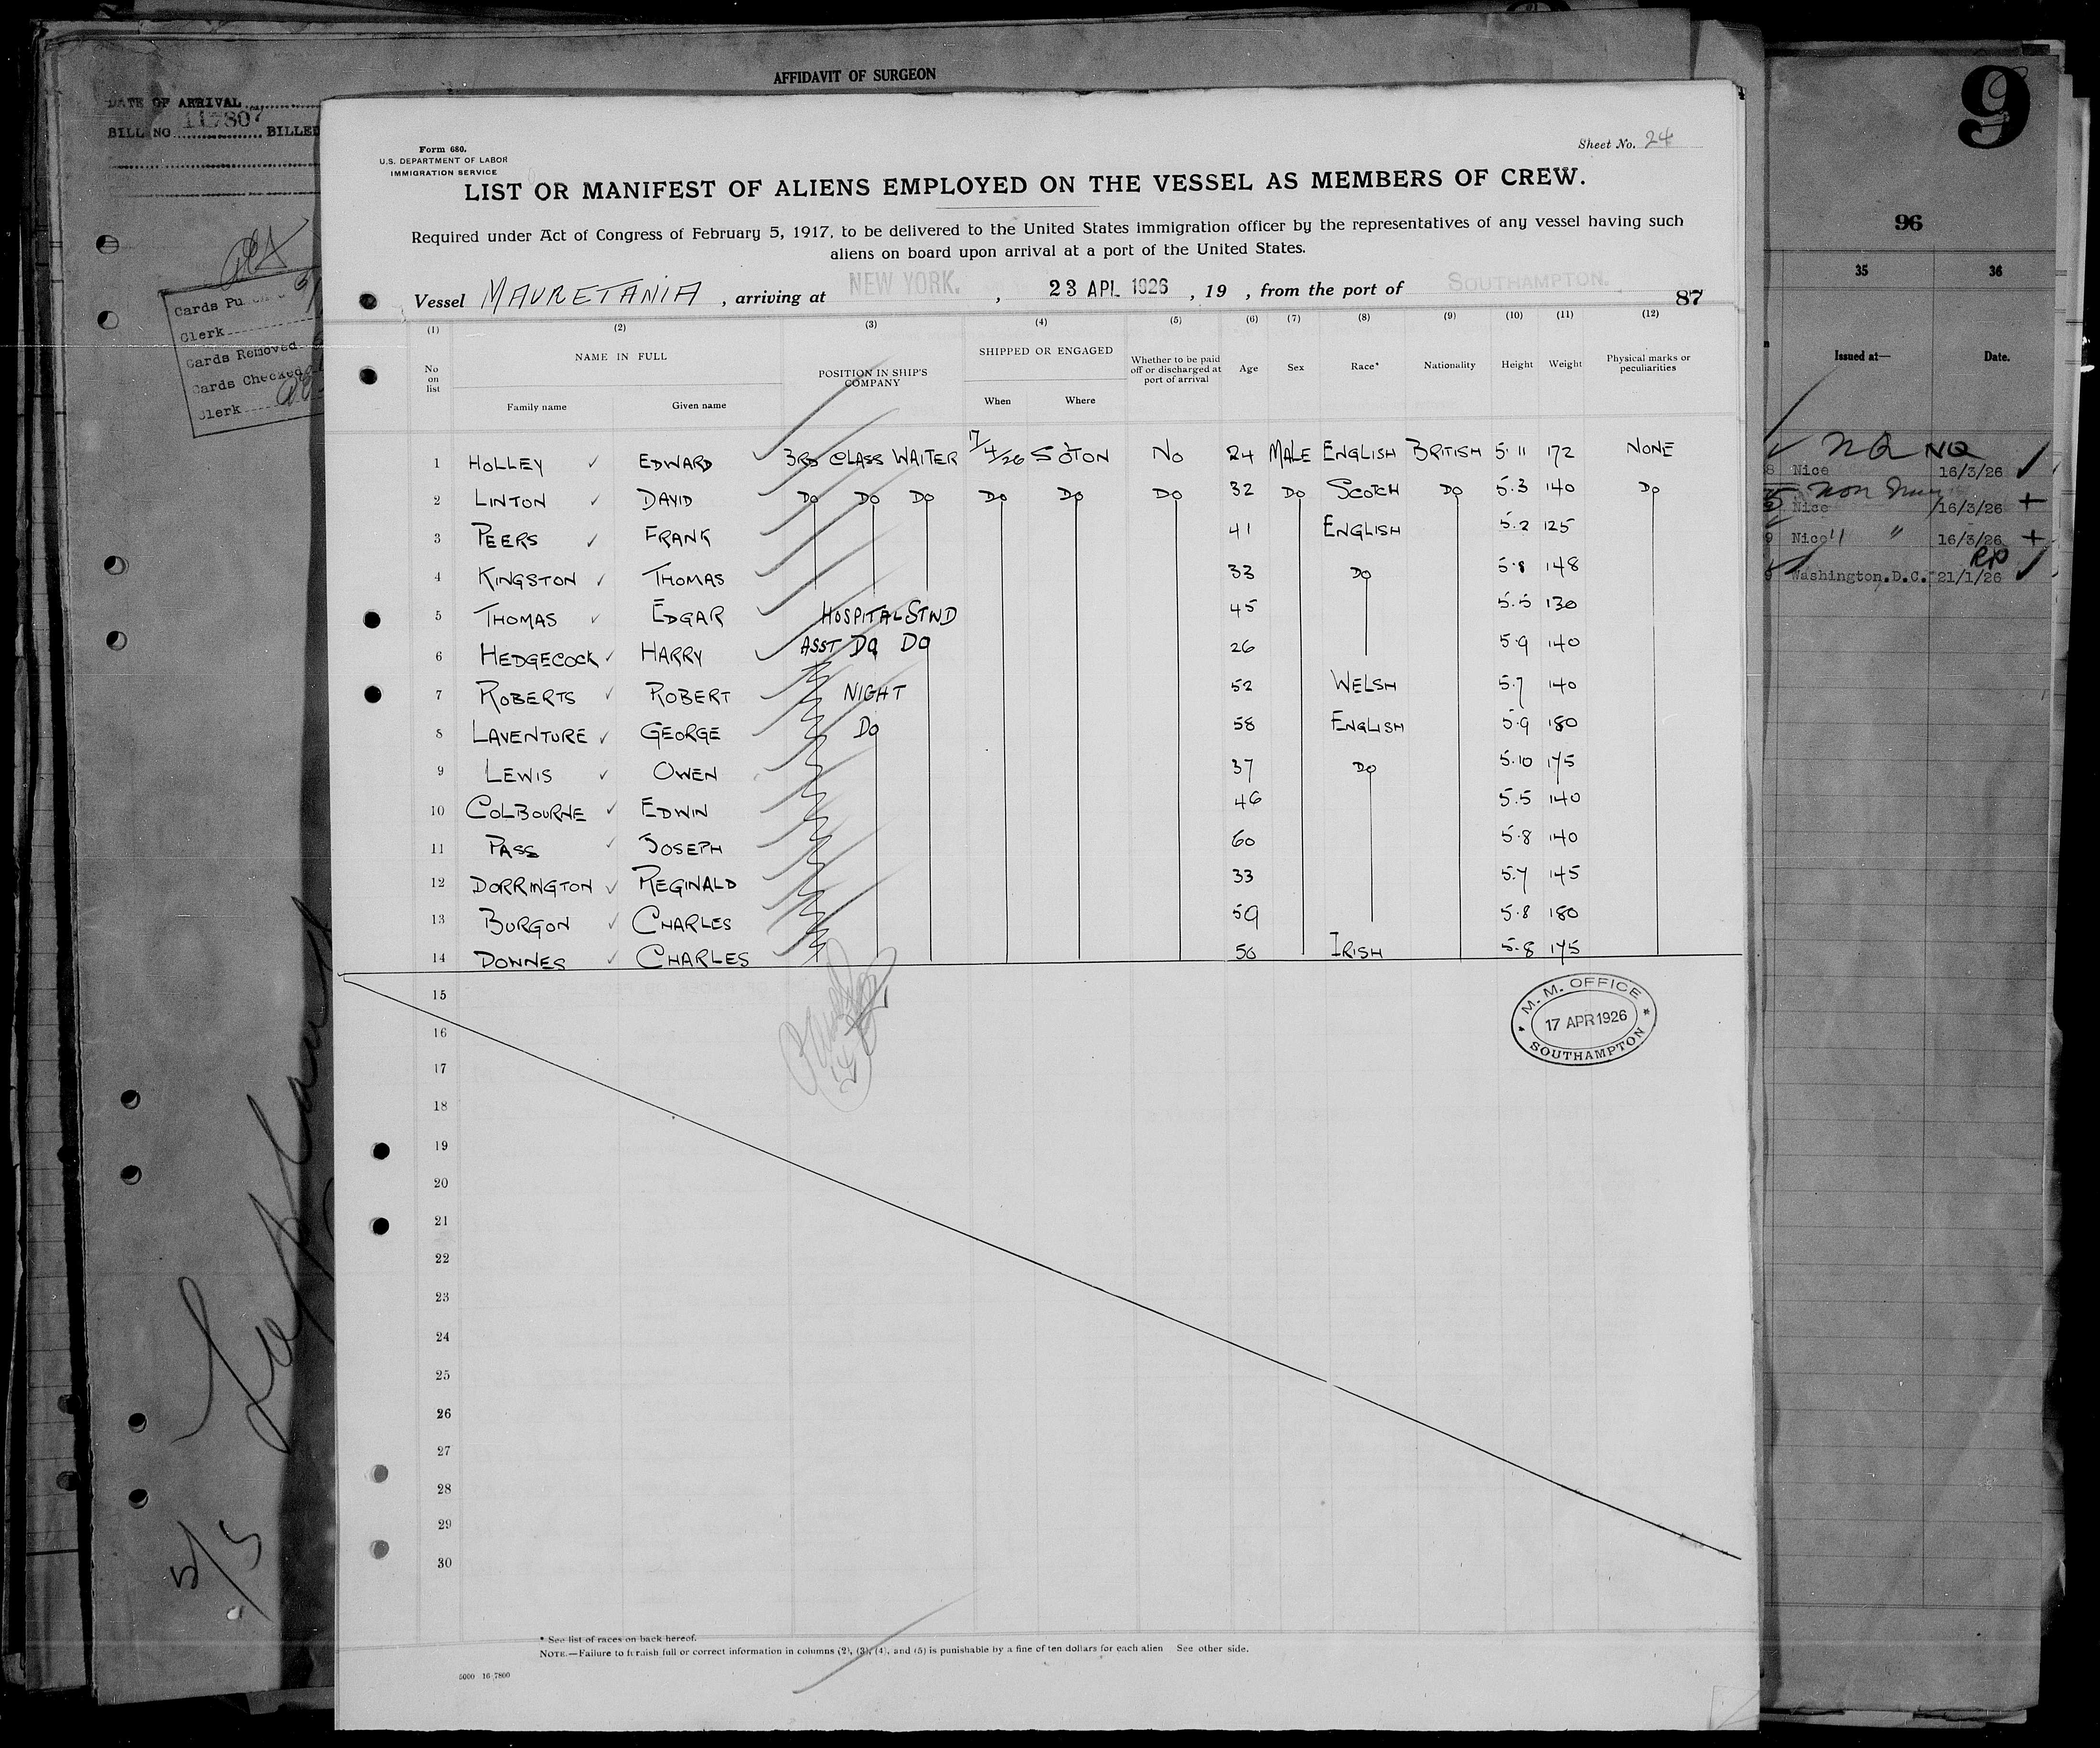 AFFIDAVIT OF SURGEON
DATE OF ARRIVAL
BILL NO. 117807 BILLED
Cards Pu
Clerk
Cards Removed
Cards Checked
Clerk
5/5
9
96
35 36
Issued at— Date.
NQ NQ
8 Nice 16/3/26
Nice 16/3/26 +
9 Nice " " 16/3/26 +
Washington.D.C. 21/1/26
Form 680.
U.S. DEPARTMENT OF LABOR
IMMIGRATION SERVICE
Sheet No. 24
LIST OR MANIFEST OF ALIENS EMPLOYED ON THE VESSEL AS MEMBERS OF CREW.
Required under Act of Congress of February 5, 1917, to be delivered to the United States immigration officer by the representatives of any vessel having such
aliens on board upon arrival at a port of the United States.
Vessel MAURETANIA, arriving at NEW YORK., 23 APL 1926, 19 , from the port of SOUTHAMPTON.
87
(1) (2) (3) (4) (5) (6) (7) (8) (9) (10) (11) (12)
No on list NAME IN FULL POSITION IN SHIP'S COMPANY SHIPPED OR ENGAGED Whether to be paid off or discharged at port of arrival Age Sex Race* Nationality Height Weight Physical marks or peculiarities
Family name Given name When Where
1 HOLLEY ✓ EDWARD 3RD CLASS WAITER 17/4/26 SOTON NO 24 MALE ENGLISH BRITISH 5.11 172 NONE
2 LINTON ✓ DAVID DO DO DO DO DO DO 32 DO SCOTCH DO 5.3 140 DO
3 PEERS ✓ FRANK 41 ENGLISH 5.2 125
4 KINGSTON ✓ THOMAS 33 DO 5.8 148
5 THOMAS ✓ EDGAR HOSPITAL STWD 45 5.5 130
6 HEDGECOCK ✓ HARRY ASST DO DO 26 5.9 140
7 ROBERTS ✓ ROBERT NIGHT 52 WELSH 5.7 140
8 LAVENTURE ✓ GEORGE DO 58 ENGLISH 5.9 180
9 LEWIS ✓ OWEN 37 DO 5.10 175
10 COLBOURNE ✓ EDWIN 46 5.5 140
11 PASS ✓ JOSEPH 60 5.8 140
12 DORRINGTON ✓ REGINALD 33 5.7 145
13 BURGON ✓ CHARLES 59 5.8 180
14 DOWNES ✓ CHARLES 50 IRISH 5.8 175
15
16
17
18
19
20
21
22
23
24
25
26
27
28
29
30
M. M. OFFICE
17 APR 1926
SOUTHAMPTON
* See list of races on back hereof.
NOTE.—Failure to furnish full or correct information in columns (2), (3), (4), and (5) is punishable by a fine of ten dollars for each alien See other side.
5000 16 7800